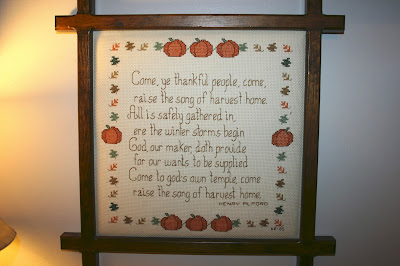 Come, ye thankful people, come,
raise the song of harvest home.
All is safely gathered in,
ere the winter storms begin
God, our maker, doth provide
for our wants to be supplied
Come to god's own temple, come
raise the song of harvest home.
HENRY ALFORD